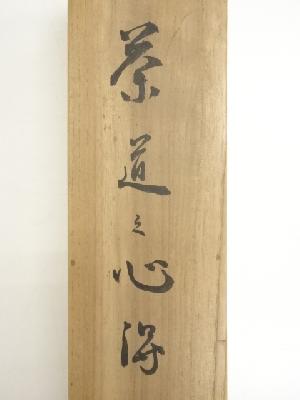 茶道之心得